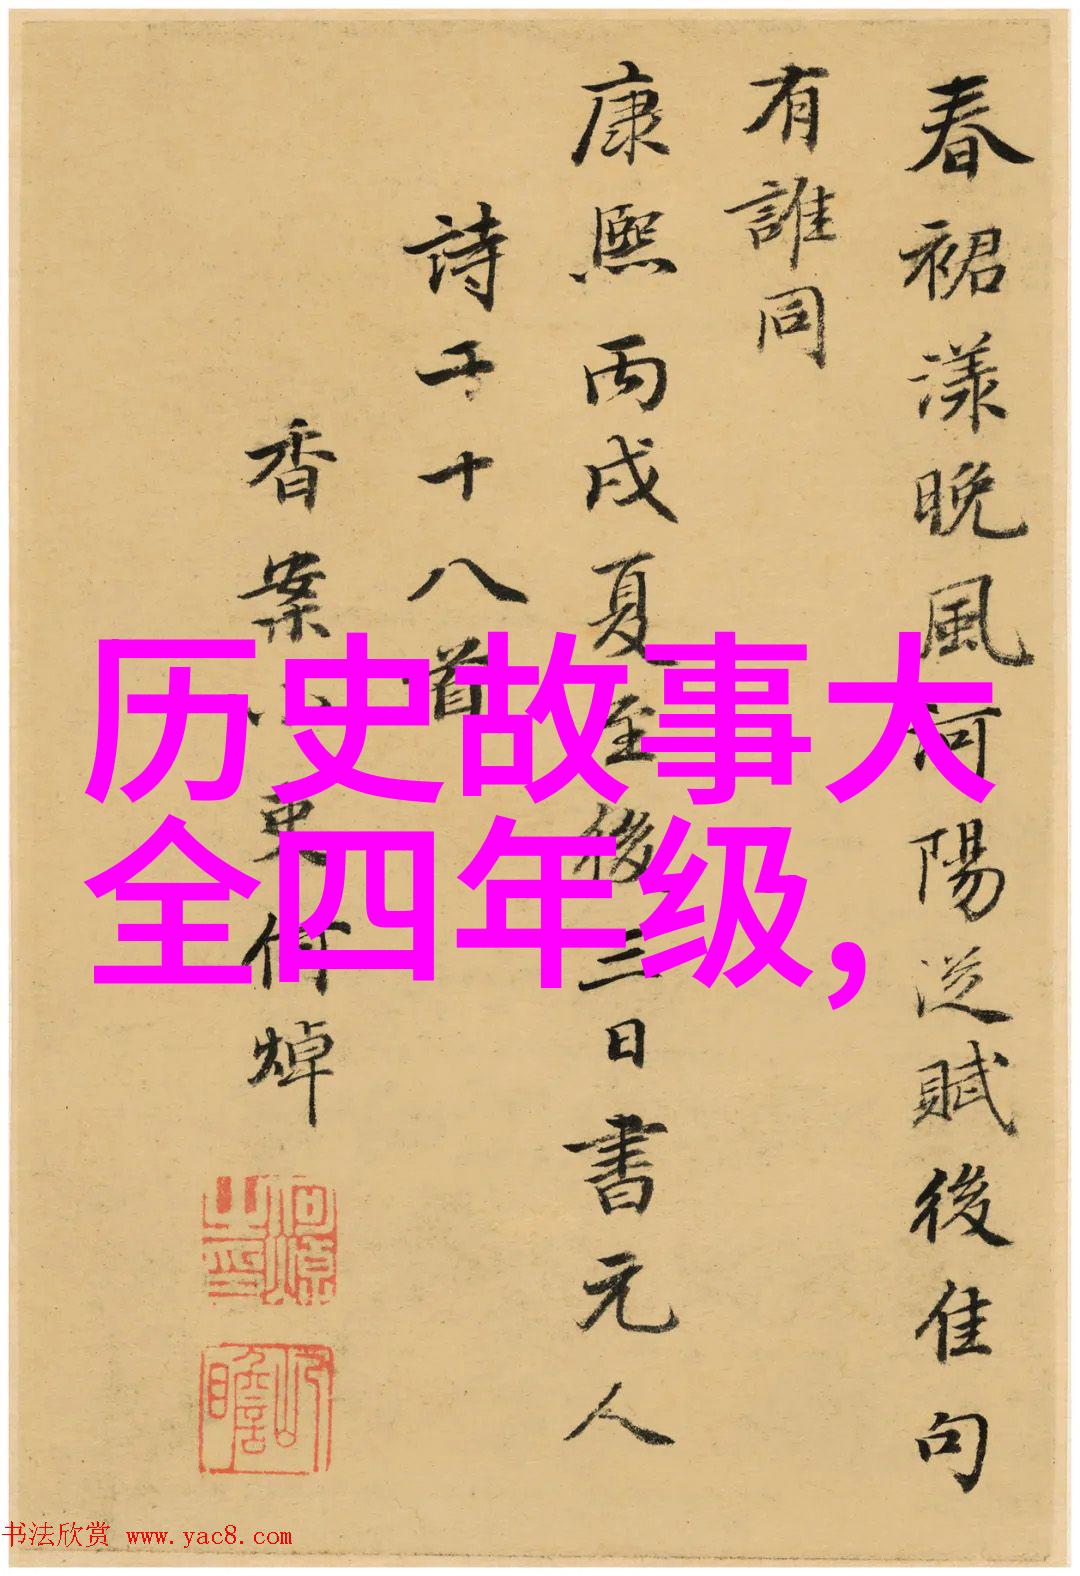 春裙漾晚風河陽送賦後佳句
有誰同
康熙丙戌夏至後三日書元人
詩二十八首
香案小吏何焯
历史故事大
全四年级,
书法欣赏 www.yac8.com